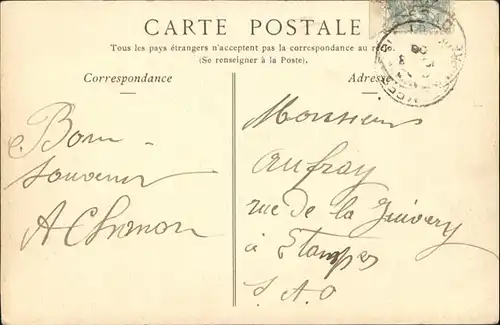 CARTE POSTALE
Tous les pays étrangers n'acceptent pas la correspondance au
(Se renseigner à la Poste).
Correspondance
Bon
souvenir
A
Adresse
Monsieur
Aufray
rue de la Juivery
à Etampes
S. & O